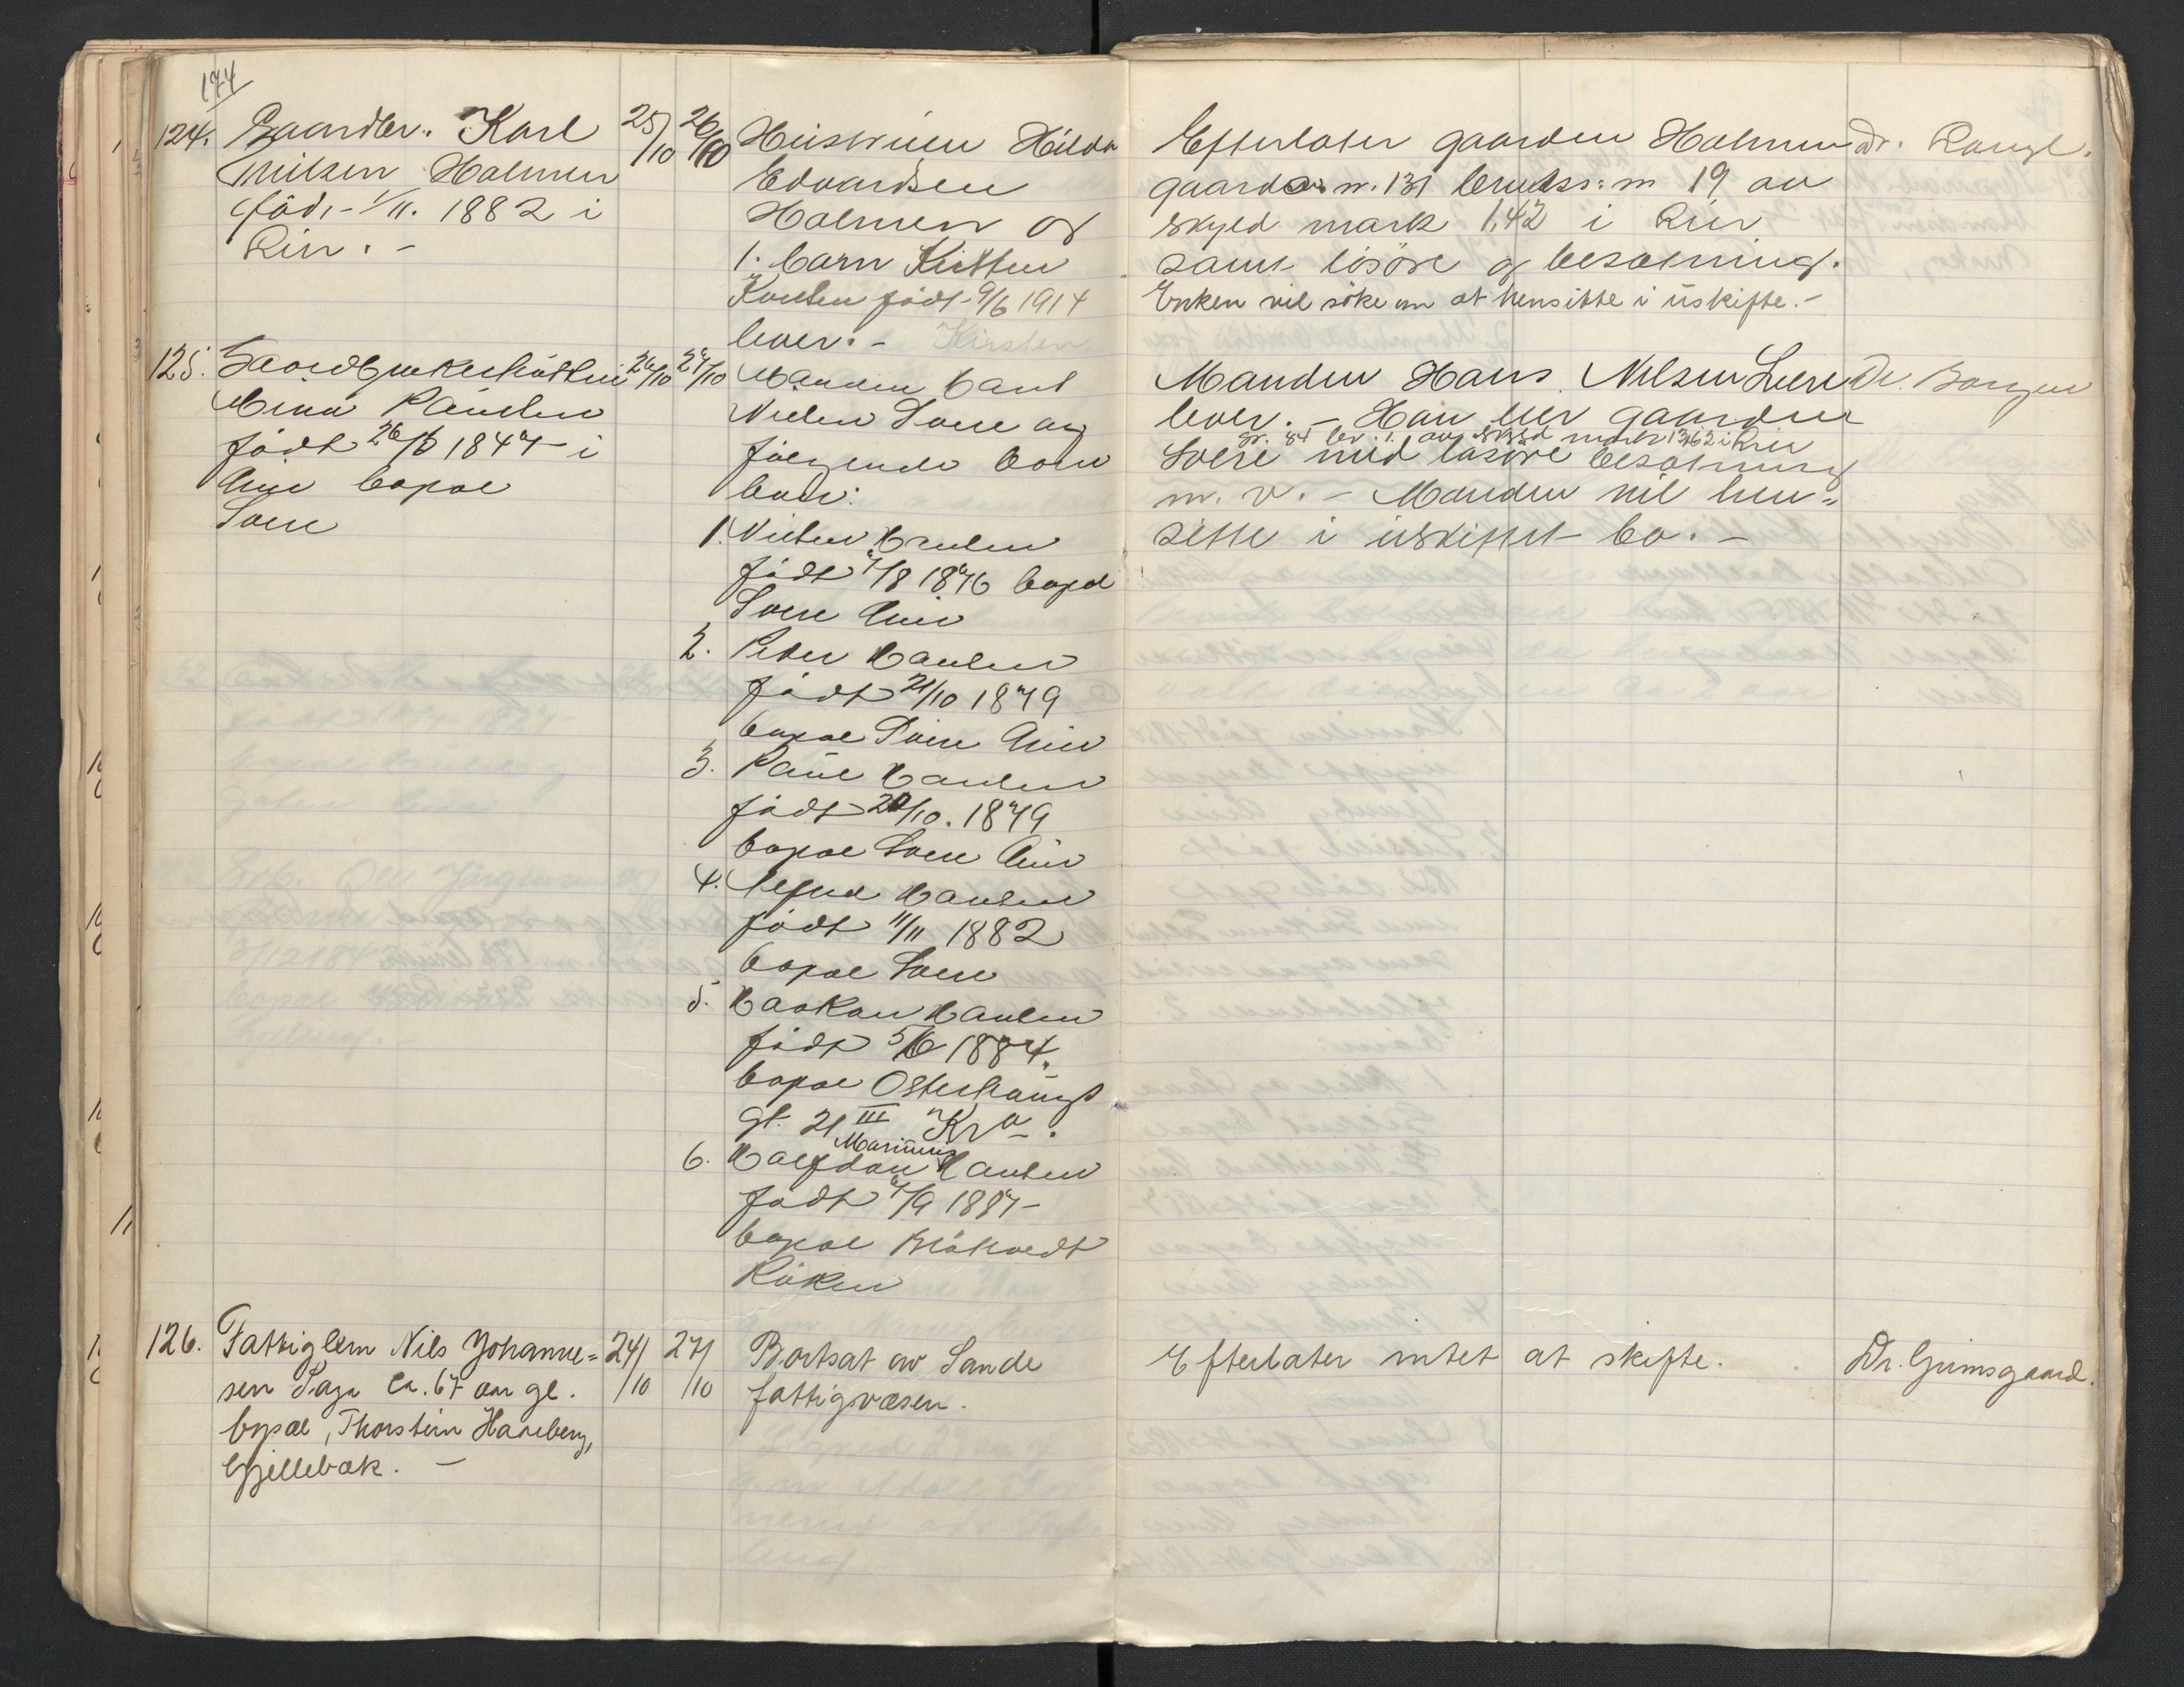 124. Gaardbr. Karl
Nilsen Holmen
född 1/11. 1882 i
Lier. -
25/10 26/10
Hustruen Hilda
Edvardsen
Holmen og
1. barn Kirsten
Karlsen född 9/6 1914
lever. - Kirsten
Efterlater gaarden Holmen
gaards nr. 131 bruks: nr 19 av
skyld mark 1,42 i Lier
samt lösöre og besætning.
Enken vil söke om at hensitte i uskifte. -
Dr.
125. Gaardbrukerhustru
Paulsen
födt 26/6 1847 i
Lier bopæl
26/10 27/10
Manden Hans
Nilsen og
fölgende barn
lever:
1. Nielsen Hansen
födt 7/8 1876 bopæl
Lier
2. Peter Hansen
födt 21/10 1879
bopæl Lier
3. Paul Hansen
födt 20/10. 1879
bopæl Lier
4. Hansen
födt 11/11 1882
bopæl
5. Haakon Hansen
födt 5/6 1884.
bopæl Osterhaugs
gt. 21 III Kra.
6. Halfdan Marinius Hansen
födt 7/9 1887 -
bopæl
Röken
Manden Hans Nilsen
lever. - Han eier gaarden
gr. 84 br. 1. av skyld mark 13,62 i Lier
med lösöre besætning
m. v. - Manden vil hen=
sitte i uskiftet bo. -
Dr. Borgen
126. Fattiglem Nils Johanne=
sen Saga ca. 67 aar gl.
bopæl, Thorstein Haneberg,
Gjellebæk. -
24/10 27/10
Bortsat av Sande
fattigvæsen.
Efterlater intet at skifte.
Dr. Grimsgaard.